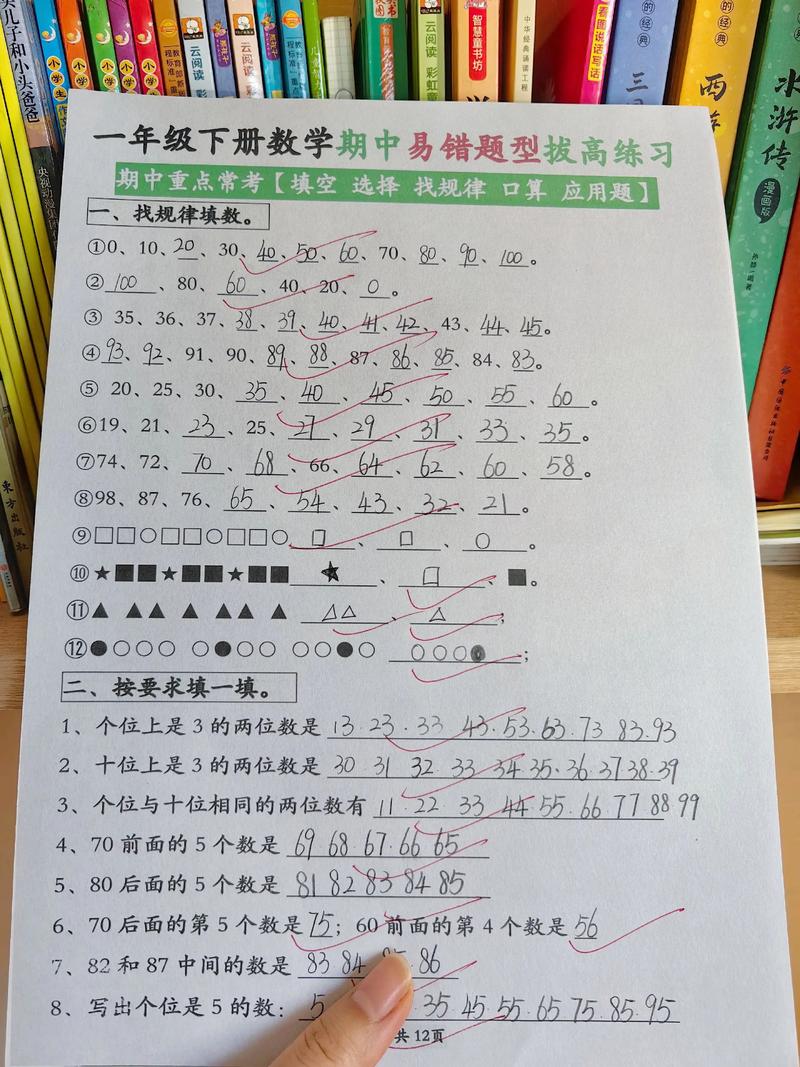 儿子和小头爸爸
央视动漫集团
东方出版社
小学生
小学生
小学
小学
云阅读
云阅读 彩虹
智慧童书坊
中华经典诵读工程
看图说话写话
的经典
三
的经典
西
水浒传
漫画版
一年级下册数学期中易错题型拔高练习
期中重点常考【填空 选择 找规律 口算 应用题】
一、找规律填数。
①0、10、20、30、40、50、60、70、80、90、100。
②100、80、60、40、20、0。
③ 35、36、37、38、39、40、41、42、43、44、45。
④93、92、91、90、89、88、87、86、85、84、83。
⑤ 20、25、30、35、40、45、50、55、60。
⑥19、21、23、25、27、29、31、33、35。
⑦74、72、70、68、66、64、62、60、58。
⑧98、87、76、65、54、43、32、21。
⑨□□○□□○□□○□、□、○。
⑩★■■★■■★■■★、□、■。
⑪▲ ▲▲ ▲ ▲▲ ▲ △△、△；
⑫●○○○ ○●○○ ○○●○ ○○○●；
二、按要求填一填。
1、个位上是 3 的两位数是 13·23·33 43·53·63·73 83·93
2、十位上是 3 的两位数是 30·31 32 33 34·35·36·37 38·39
3、个位与十位相同的两位数有 11·22·33 44·55·66·77 88 99
4、70 前面的 5 个数是 69 68·67·66 65
5、80 后面的 5 个数是 81 82 83 84 85
6、70 后面的第 5 个数是 75；60 前面的第 4 个数是 56
7、82 和 87 中间的数是 83 84 85·86
8、写出个位是 5 的数：5 35·45 55·65 75·85·95
共 12页